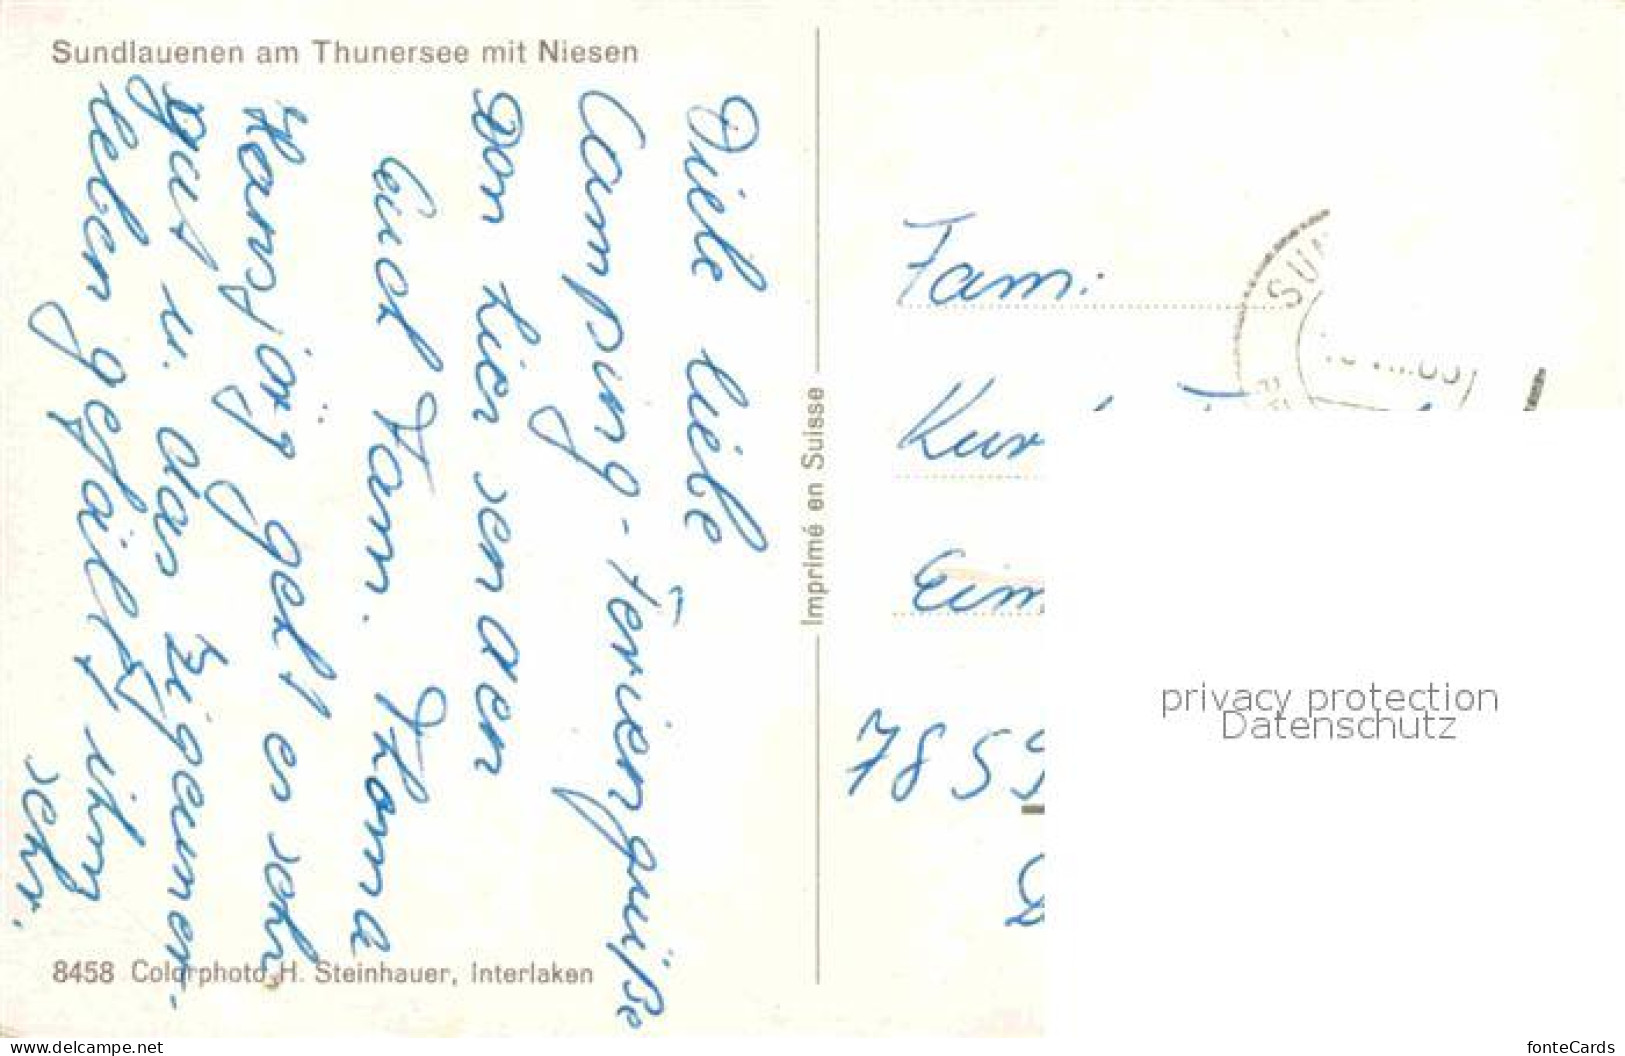 Sundlauenen am Thunersee mit Niesen
Viele liebe
Camping-Feriengrüße
von hier senden
Euch Fam. Thoma
Hansjörg geht es sehr
gut u. das Zigeuner-
leben gefällt ihm
sehr.
8458 Colorphoto H. Steinhauer, Interlaken
Imprimé en Suisse
Fam.
SUN
Kur
Eim
7859
privacy protection
Datenschutz
www.delcampe.net
fonteCards